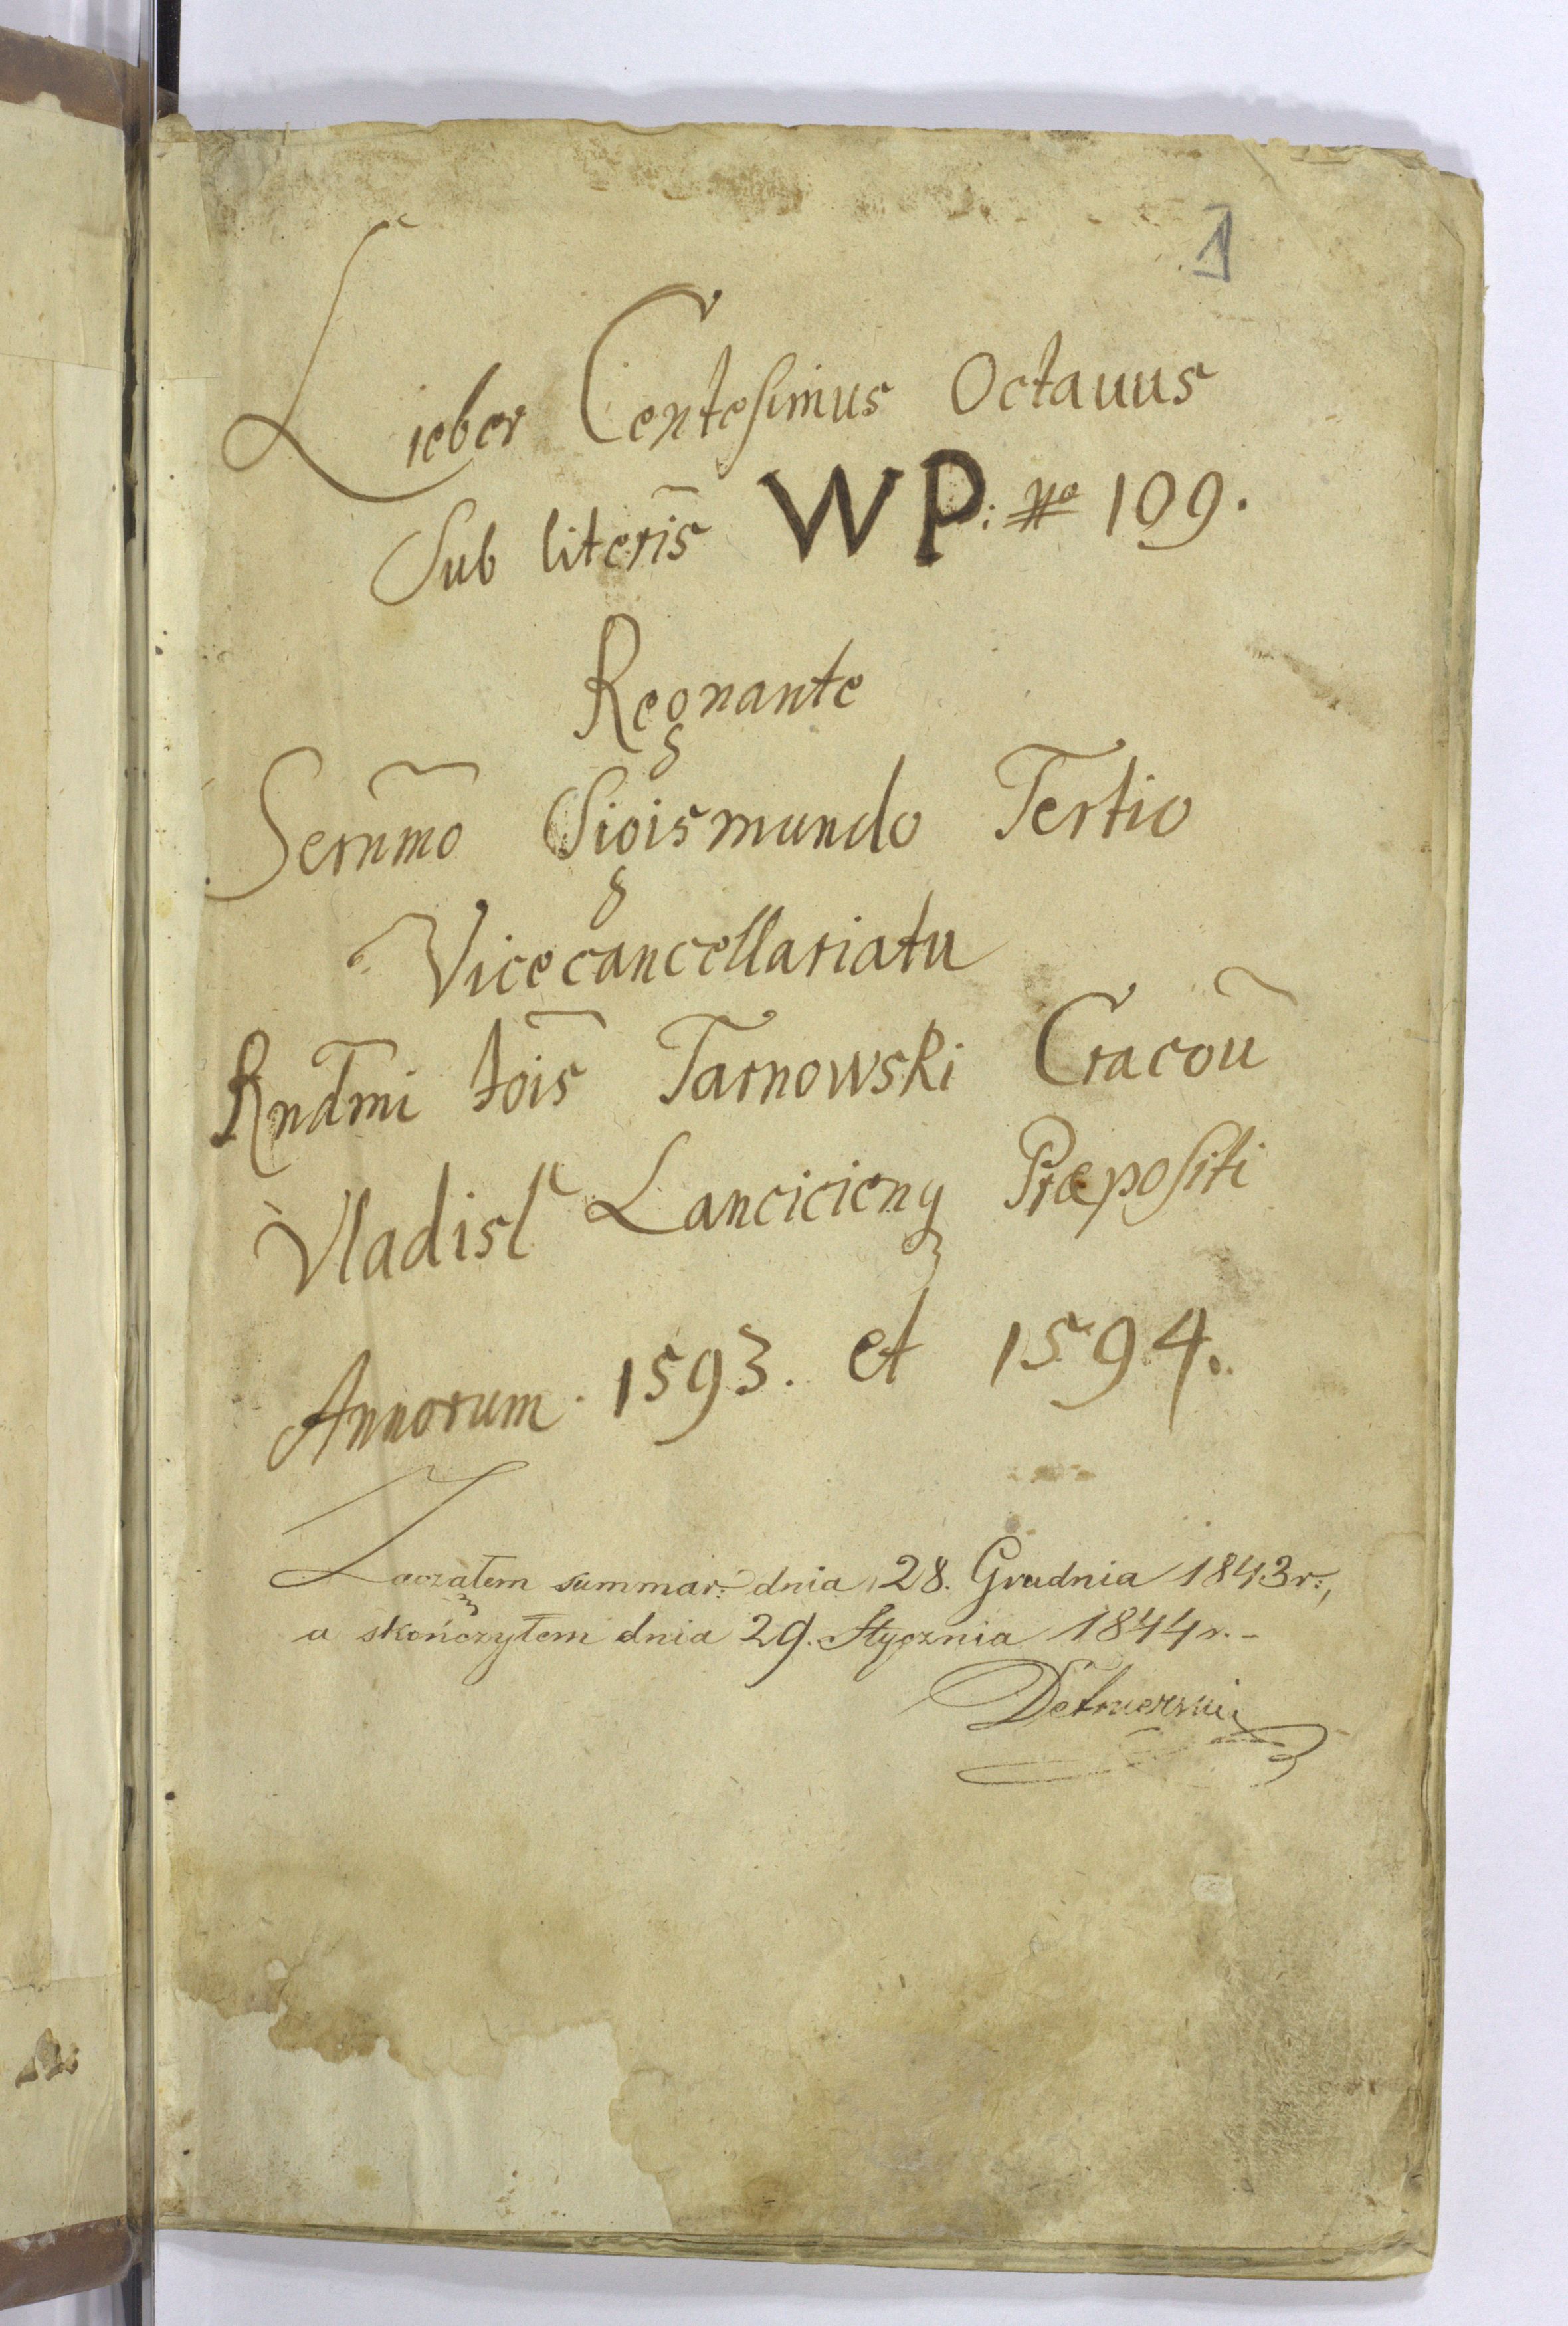 1
Lieber Centesimus Octauus
Sub literis̃ WP: No 109.
Regnante
Serñmo Sigismundo Tertio
Vicecancellariatu
Rndm̃i Iõis Tarnowski Cracoũ
Vladisl Lancicienq Præpositi
Annorum. 1593. et 1594.
Zacząłem summar: dnia 28. Grudnia 1843r:,
a skończyłem dnia 29. Stycznia 1844r.-